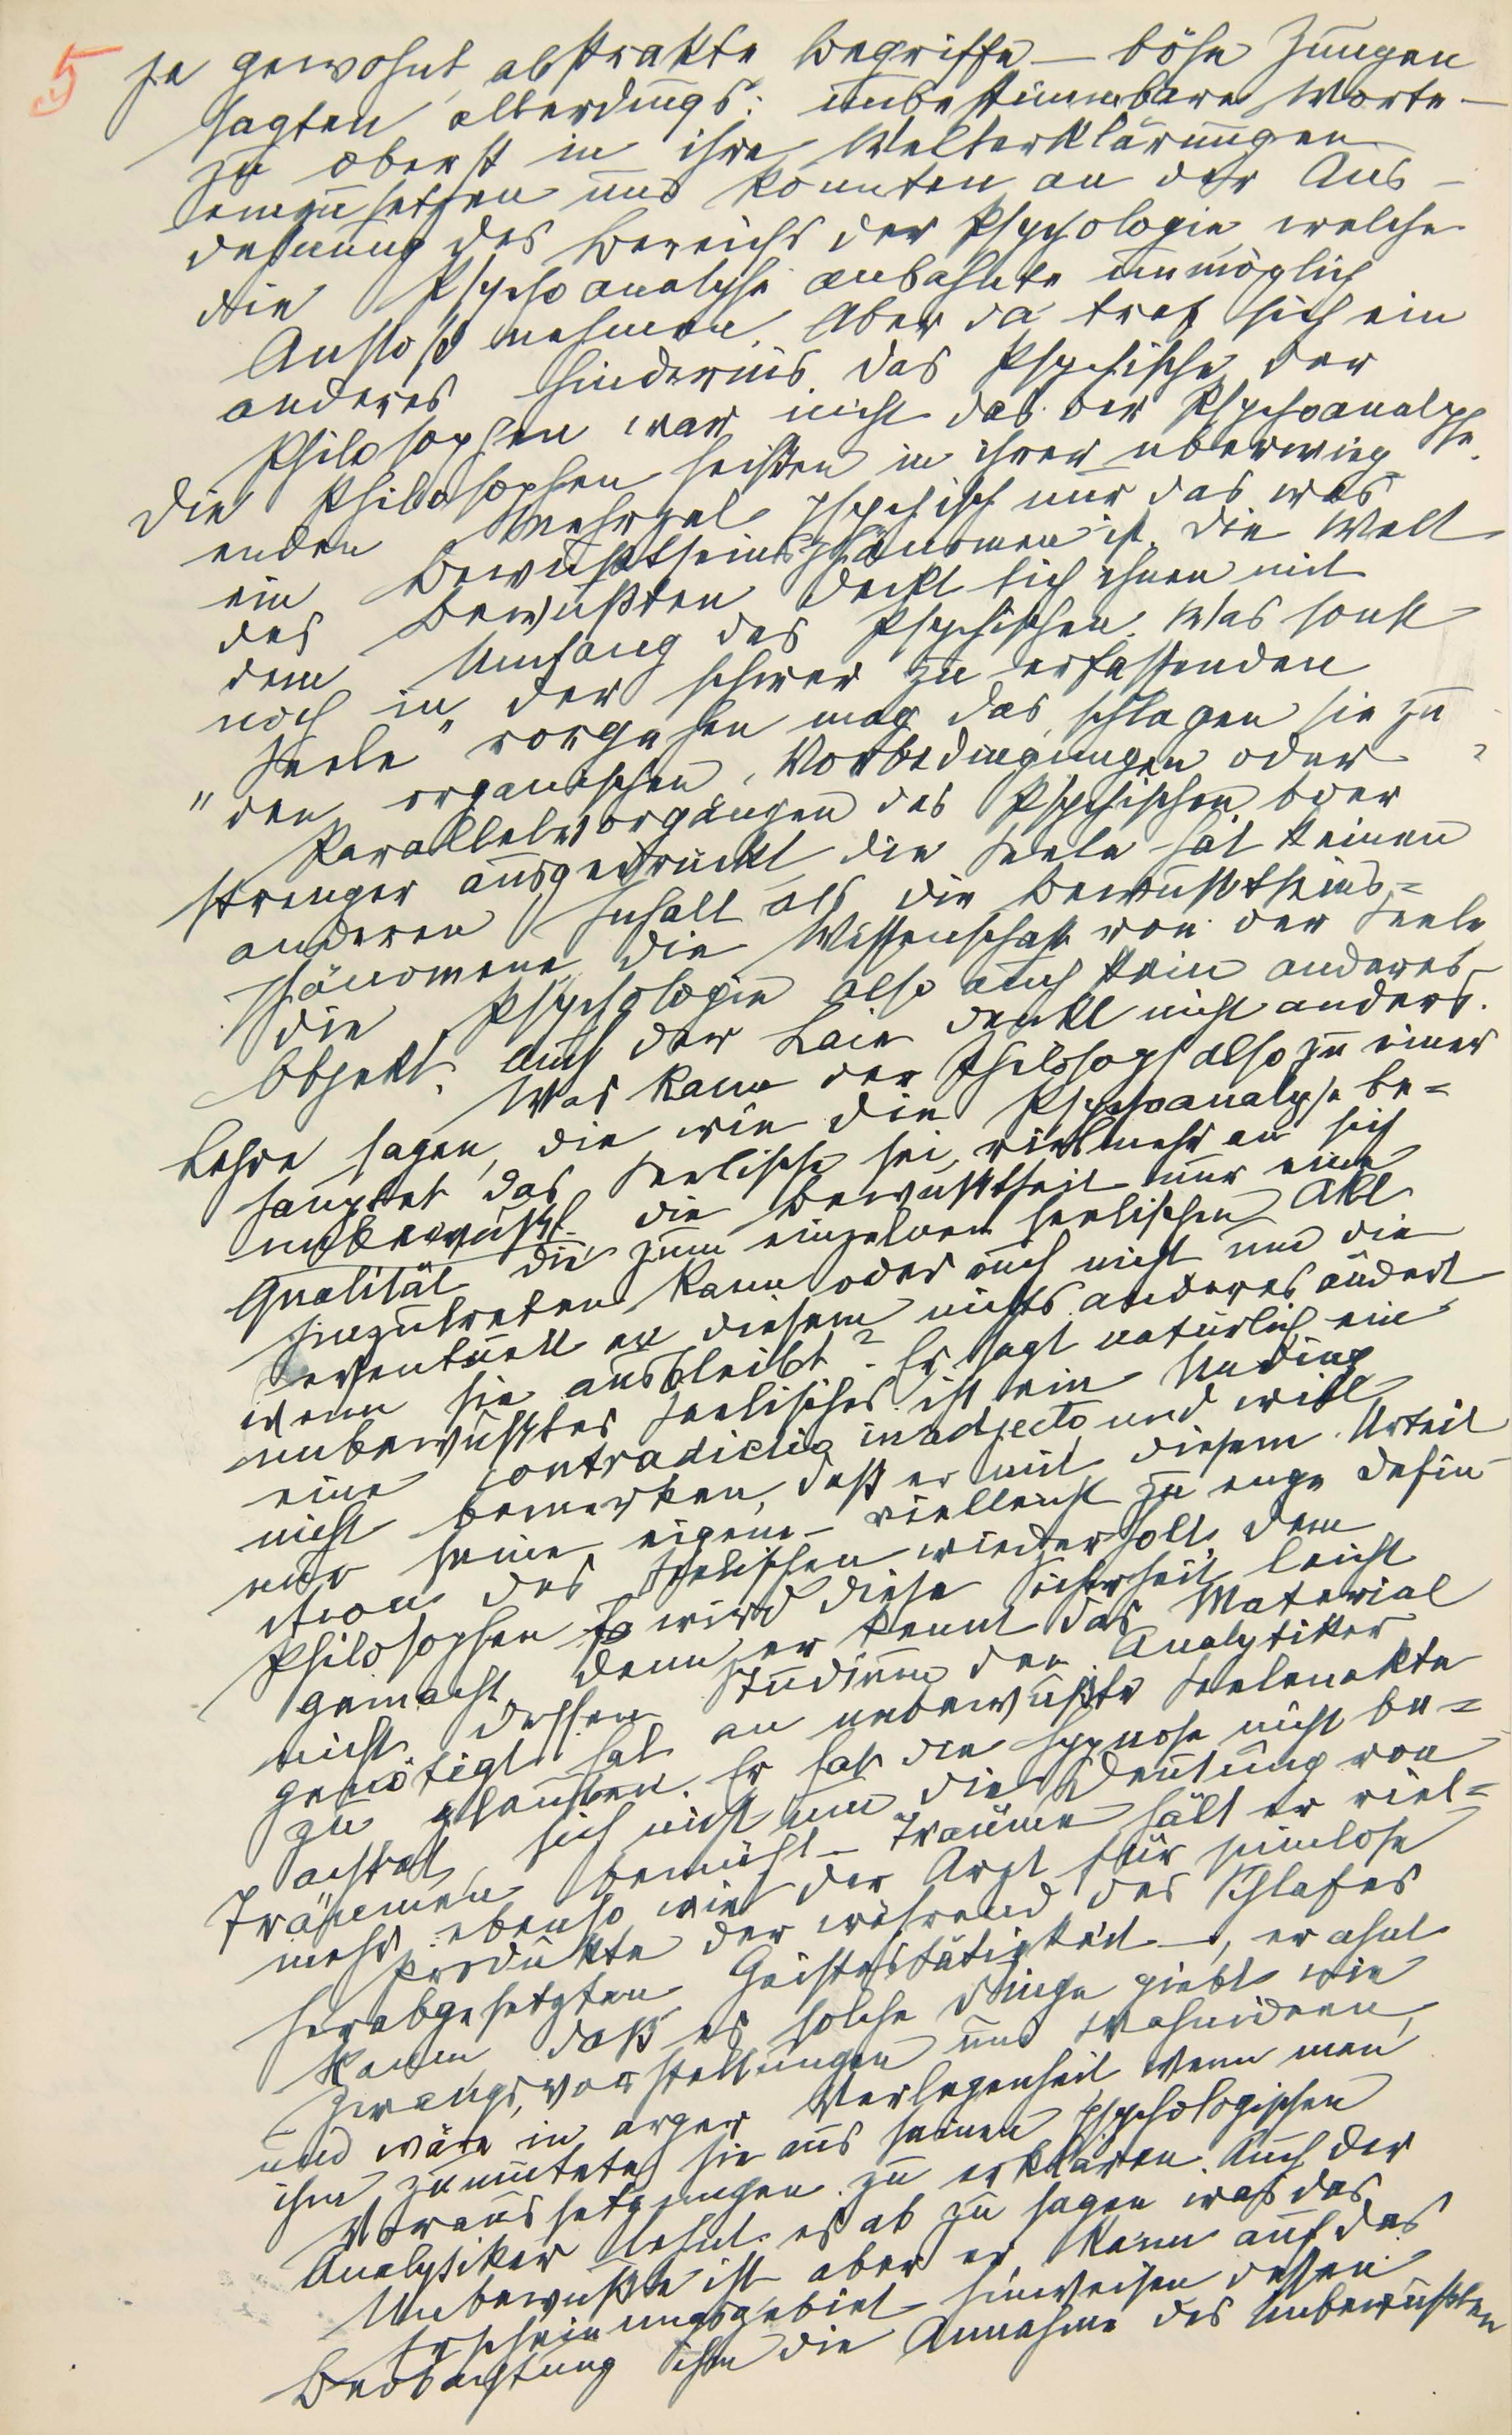 5
ja gewohnt, abstrakte Begriffe – böse Zungen
sagten allerdings: unbestimmbare Worte –
zu oberst in ihre Welterklärungen
einzusetzen und konnten an der Aus-
dehnung des Bereichs der Psychologie, welche
die Psychoanalyse anbahnte unmöglich
Anstoß nehmen. Aber da traf sich ein
anderes Hindernis. Das Psychische der
Philosophen war nicht das der Psychoanalyse.
Die Philosophen heißen in ihrer überwieg-
enden Mehrzal psychisch nur das was
ein Bewußtseinsphänomen ist. Die Welt
des Bewußten deckt sich ihnen mit
dem Umfang des Psychischen. Was sonst
noch in der schwer zu erfassenden
„Seele" vorgehen mag, das schlagen sie zu
den organischen Vorbedingungen oder
Parallelvorgängen des Psychischen oder
strenger ausgedrückt, die Seele hat keinen
anderen Inhalt als die Bewußtseins=
phänomene, die Wissenschaft von der Seele
die Psychologie also auch kein anderes
Objekt. Auch der Laie denkt nicht anders.
Was kann der Philosoph also zu einer
Lehre sagen, die wie die Psychoanalyse be=
hauptet das Seelische sei vielmehr an sich
unbewußt, die Bewußtheit nur eine
Qualität die zum einzelnen seelischen Akt
hinzutreten kann oder auch nicht und die
eventuell an diesem nichts anderes ändert
wenn sie ausbleibt? Er sagt natürlich ein
unbewußtes Seelisches ist ein Unding
eine contradictio in adjecto und will
nicht bemerken, daß er mit diesem Urteil
nur seine eigene – vielleicht zu enge Defin-
ition des Seelischen wiederholt. Dem
Philosophen wird diese Sicherheit leicht
gemacht, denn er kennt das Material
nicht dessen Studium den Analytiker
genötigt hat an unbewußte Seelenakte
zu glauben. Er hat die Hypnose nicht be=
achtet, sich nicht um die Deutung von
Träumen bemüht – Träume hält er viel=
mehr ebenso wie der Arzt für sinnlose
Produkte der während des Schlafes
herabgesetzten Geistestätigkeit –, er ahnt
kaum daß es solche Dinge giebt wie
Zwangsvorstellungen und Wahnideen,
und wäre in arger Verlegenheit wenn man
ihm zumutete sie aus seinen psychologischen
Voraussetzungen zu erklären. Auch der
Analytiker lehnt es ab zu sagen was das
Unbewußte ist aber er kann auf das
Erscheinungsgebiet hinweisen dessen
Beobachtung ihm die Annahme des Unbewußten